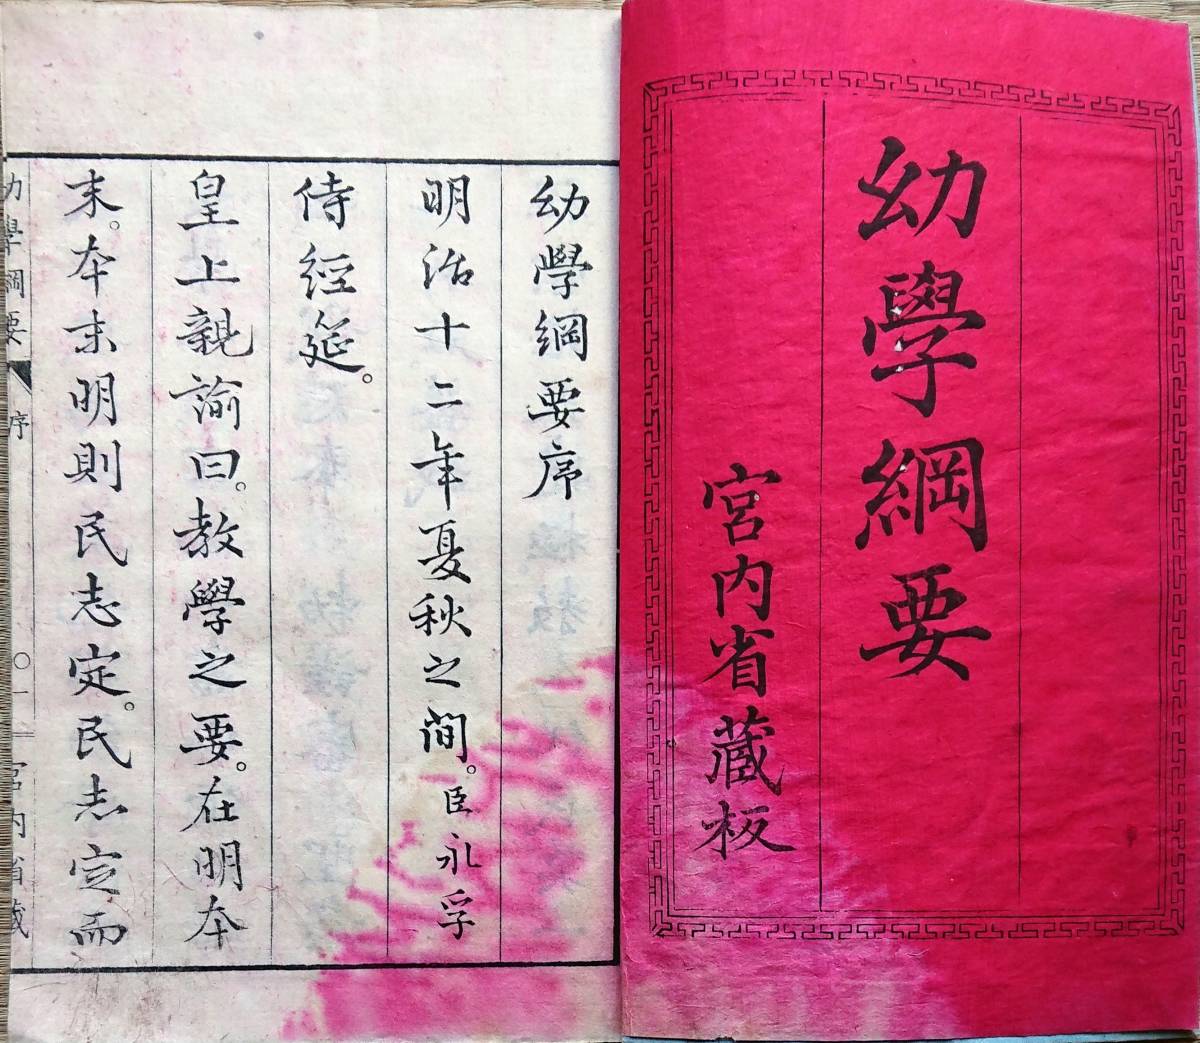 幼學綱要
宮内省藏板
幼學綱要序
明治十二年夏秋之間。臣永孚
侍經筵。
皇上親諭曰。教學之要。在明本
末。本末明則民志定。民志定而
幼學綱要 序 〇一 宮内省藏